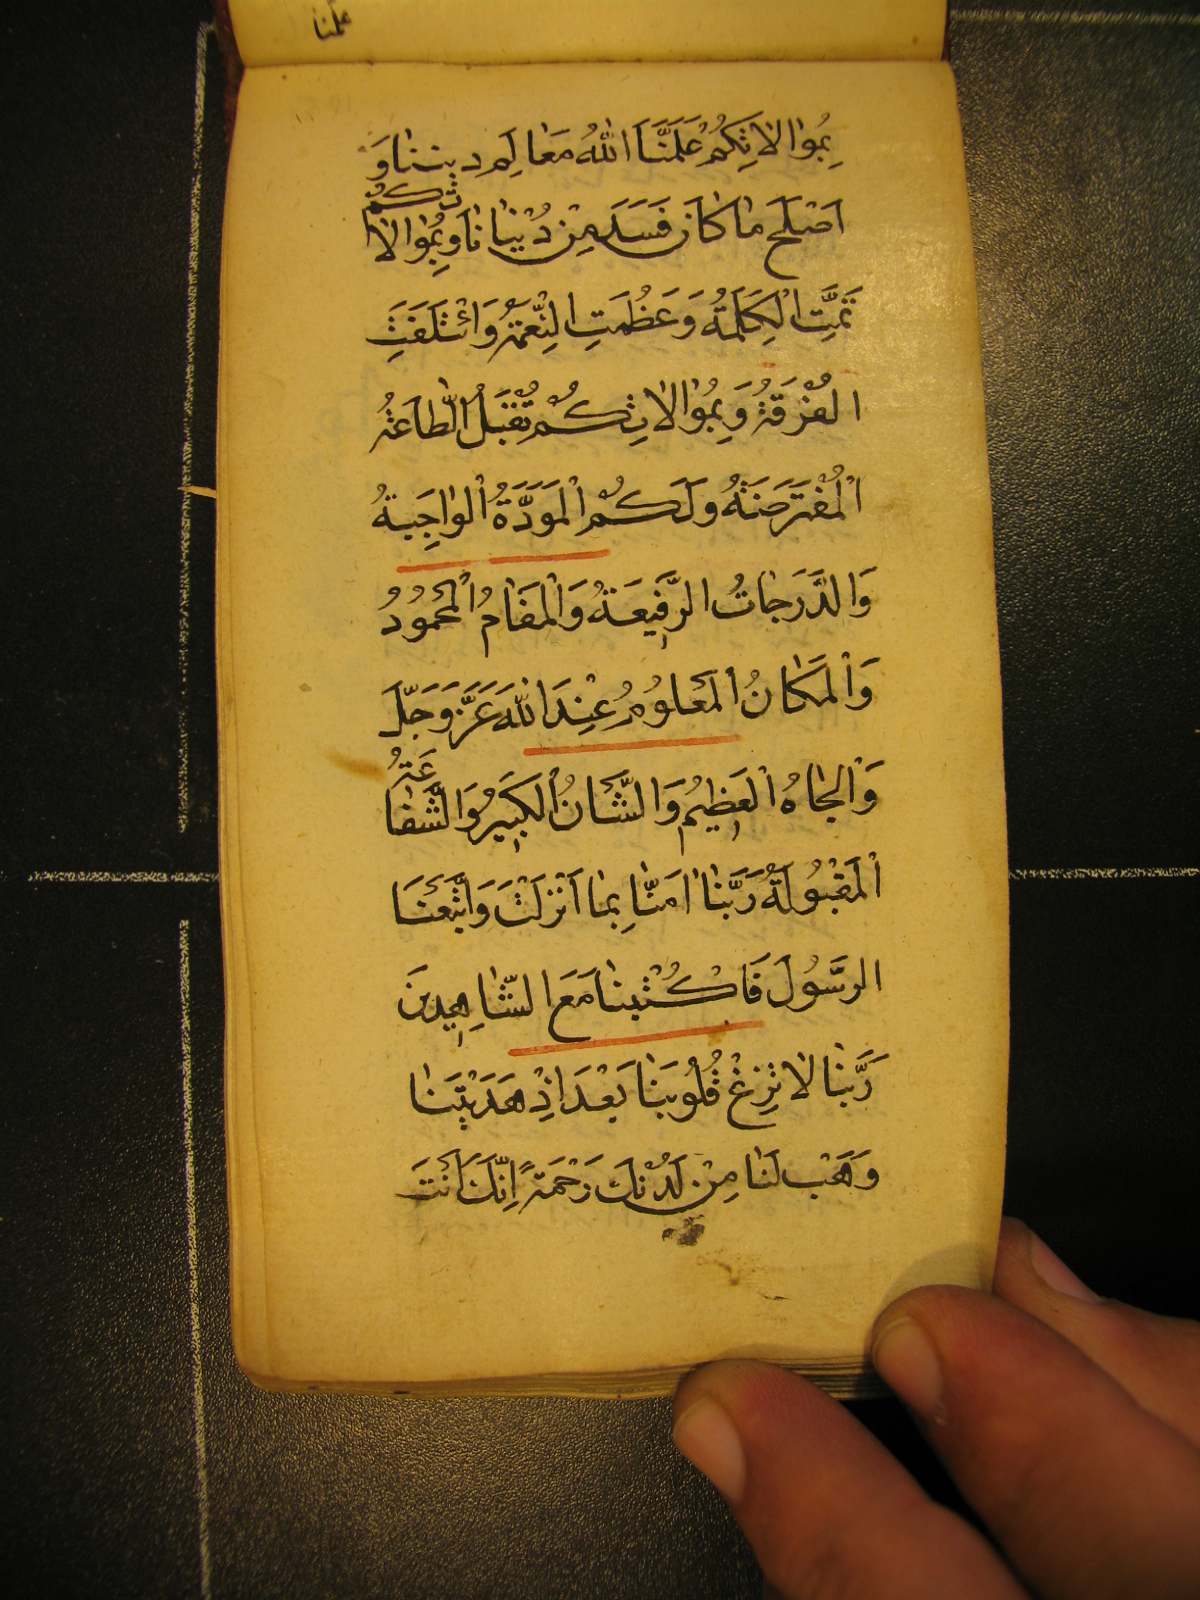 علمنا
بِمُوالاتِكُمْ عَلَّمَنَا اللهُ مَعٰالِمَ دينِنٰا وَ
اَصْلَحَ مٰا كٰانَ فَسَدَ مِنْ دُنْيٰانٰا وَبِمُوالاتِكُمْ
تَمَّتِ الْكَلِمَةُ وَعَظُمَتِ النِّعْمَةُ وَائْتَلَفَتِ
الْفُرْقَةُ وَبِمُوالاتِكُمْ تُقْبَلُ الطّاعَةُ
الْمُفْتَرَضَةُ وَلَكُمُ الْمَوَدَّةُ الْوٰاجِبَةُ
وَالدَّرَجٰاتُ الرَّفيعَةُ وَالْمَقٰامُ الْمَحْمُودُ
وَالْمَكٰانُ الْمَعْلُومُ عِنْدَ اللهِ عَزَّوَجَلَّ
وَالْجٰاهُ الْعَظيمُ وَالشَّأنُ الْكَبيرُ وَالشَّفٰاعَةُ
الْمَقْبُولَةُ رَبَّنٰا اٰمَنّٰا بِمٰا اَنْزَلْتَ وَاتَّبَعْنَا
الرَّسُولَ فَاكْتُبْنٰا مَعَ الشّٰاهِدينَ
رَبَّنٰا لا تُزِغْ قُلُوبَنٰا بَعْدَ اِذْ هَدَيْتَنٰا
وَهَبْ لَنٰا مِنْ لَدُنْكَ رَحْمَةً اِنَّكَ اَنْتَ